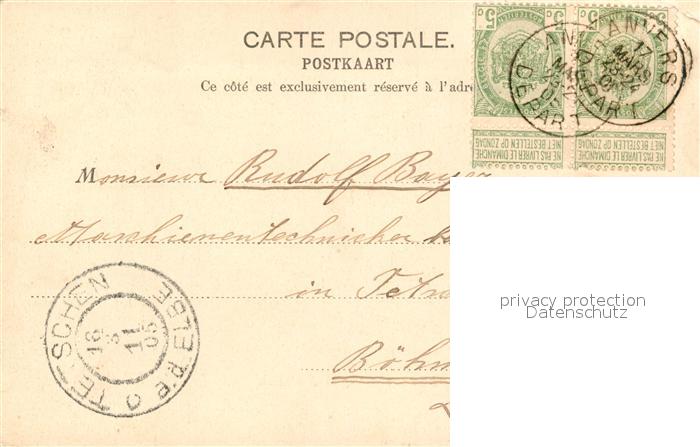 CARTE POSTALE.
POSTKAART
Ce côté est exclusivement réservé à l'adre
5c 5c
NE PAS LIVRER LE DIMANCHE
NIET BESTELLEN OP ZONDAG
NE PAS LIVRER LE DIMANCHE
NIET BESTELLEN OP ZONDAG
ANVERS
17
MARS
DEPART
DEPART
Monsieur Rudolf Bayer
Maschienentechnicker
in Tetsc
Böhm
TETSCHEN
privacy protection
Datenschutz